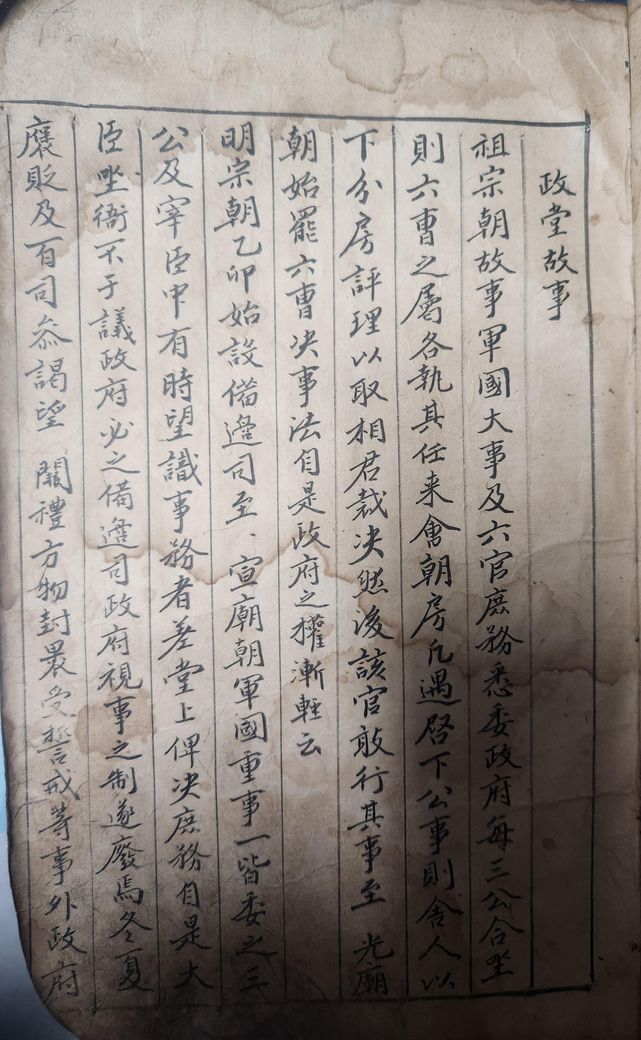 政堂故事
祖宗朝故事軍國大事及六官庶務悉委政府每三公合坐
則六曹之屬各執其任来會朝房凡遇啓下公事則舍人以
下分房評理以取相君裁决然後該官敢行其事至 光廟
朝始罷六曹决事法自是政府之權漸輕云
明宗朝乙卯始設備邊司至 宣廟朝軍國重事一皆委之三
公及宰臣中有時望識事務者差堂上俾决庶務自是大
臣坐衙不于議政府必之備邊司政府視事之制遂廢焉冬夏
襃貶及百司叅謁望 闕禮方物封裹受誓戒等事外政府